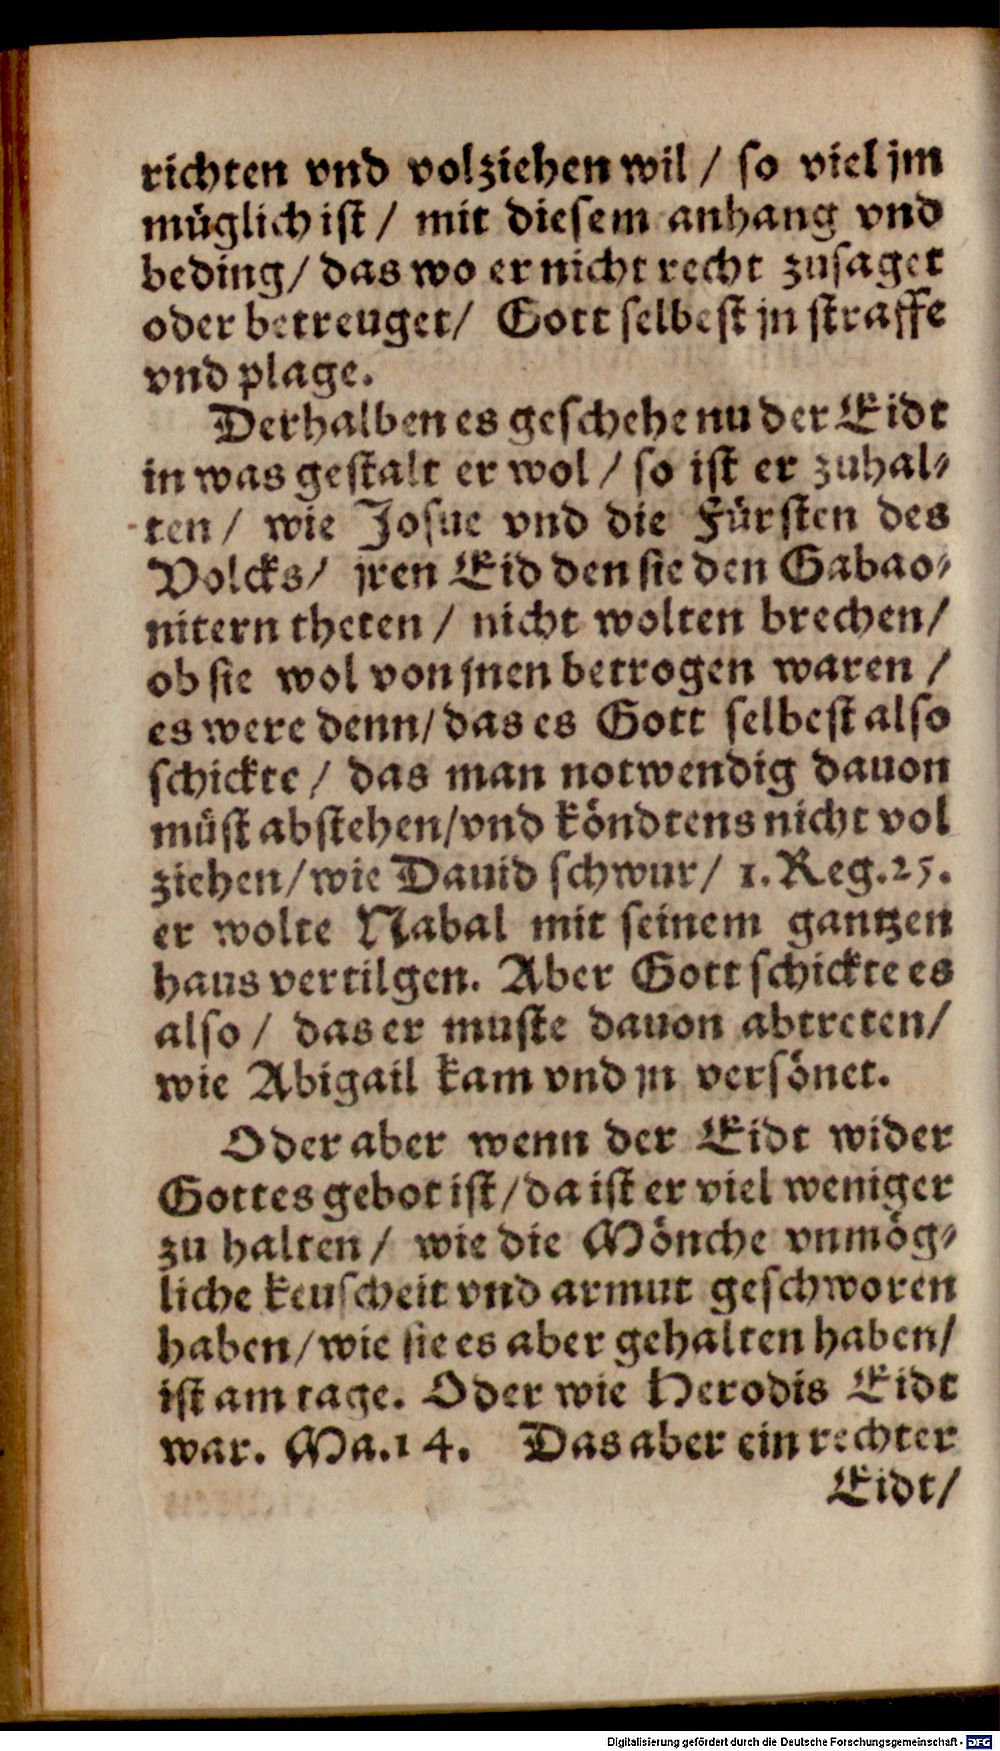 richten vnd volziehen wil / so viel jm
müglich ist / mit diesem anhang vnd
beding / das wo er nicht recht zusaget
oder betreuget / Gott selbest jn straffe
vnd plage.
Derhalben es geschehe nu der Eidt
in was gestalt er wol / so ist er zuhal-
ten / wie Josue vnd die Fürsten des
Volcks / jren Eid den sie den Gabao-
nitern theten / nicht wolten brechen /
ob sie wol von jnen betrogen waren /
es were denn / das es Gott selbest also
schickte / das man notwendig dauon
müst abstehen / vnd köndtens nicht vol
ziehen / wie Dauid schwur / 1. Reg. 25.
er wolte Nabal mit seinem gantzen
haus vertilgen. Aber Gott schickte es
also / das er muste dauon abtreten /
wie Abigail kam vnd jn versönet.
Oder aber wenn der Eidt wider
Gottes gebot ist / da ist er viel weniger
zu halten / wie die Mönche vnmög-
liche keuscheit vnd armut geschworen
haben / wie sie es aber gehalten haben /
ist am tage. Oder wie Herodis Eidt
war. Ma. 14. Das aber ein rechter
Eidt /
Digitalisierung gefördert durch die Deutsche Forschungsgemeinschaft - DFG